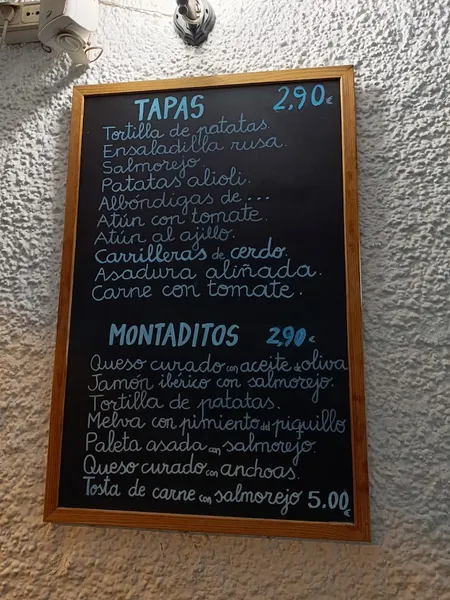 TAPAS 2,90€
Tortilla de patatas.
Ensaladilla rusa.
Salmorejo
Patatas alioli.
Albóndigas de ...
Atún con tomate.
Atún al ajillo.
Carrilleras de cerdo.
Asadura aliñada.
Carne con tomate.
MONTADITOS 2,90€
Queso curado con aceite de oliva
Jamón ibérico con salmorejo.
Tortilla de patatas.
Melva con pimiento del piquillo
Paleta asada con salmorejo.
Queso curado con anchoas.
Tosta de carne con salmorejo 5.00€